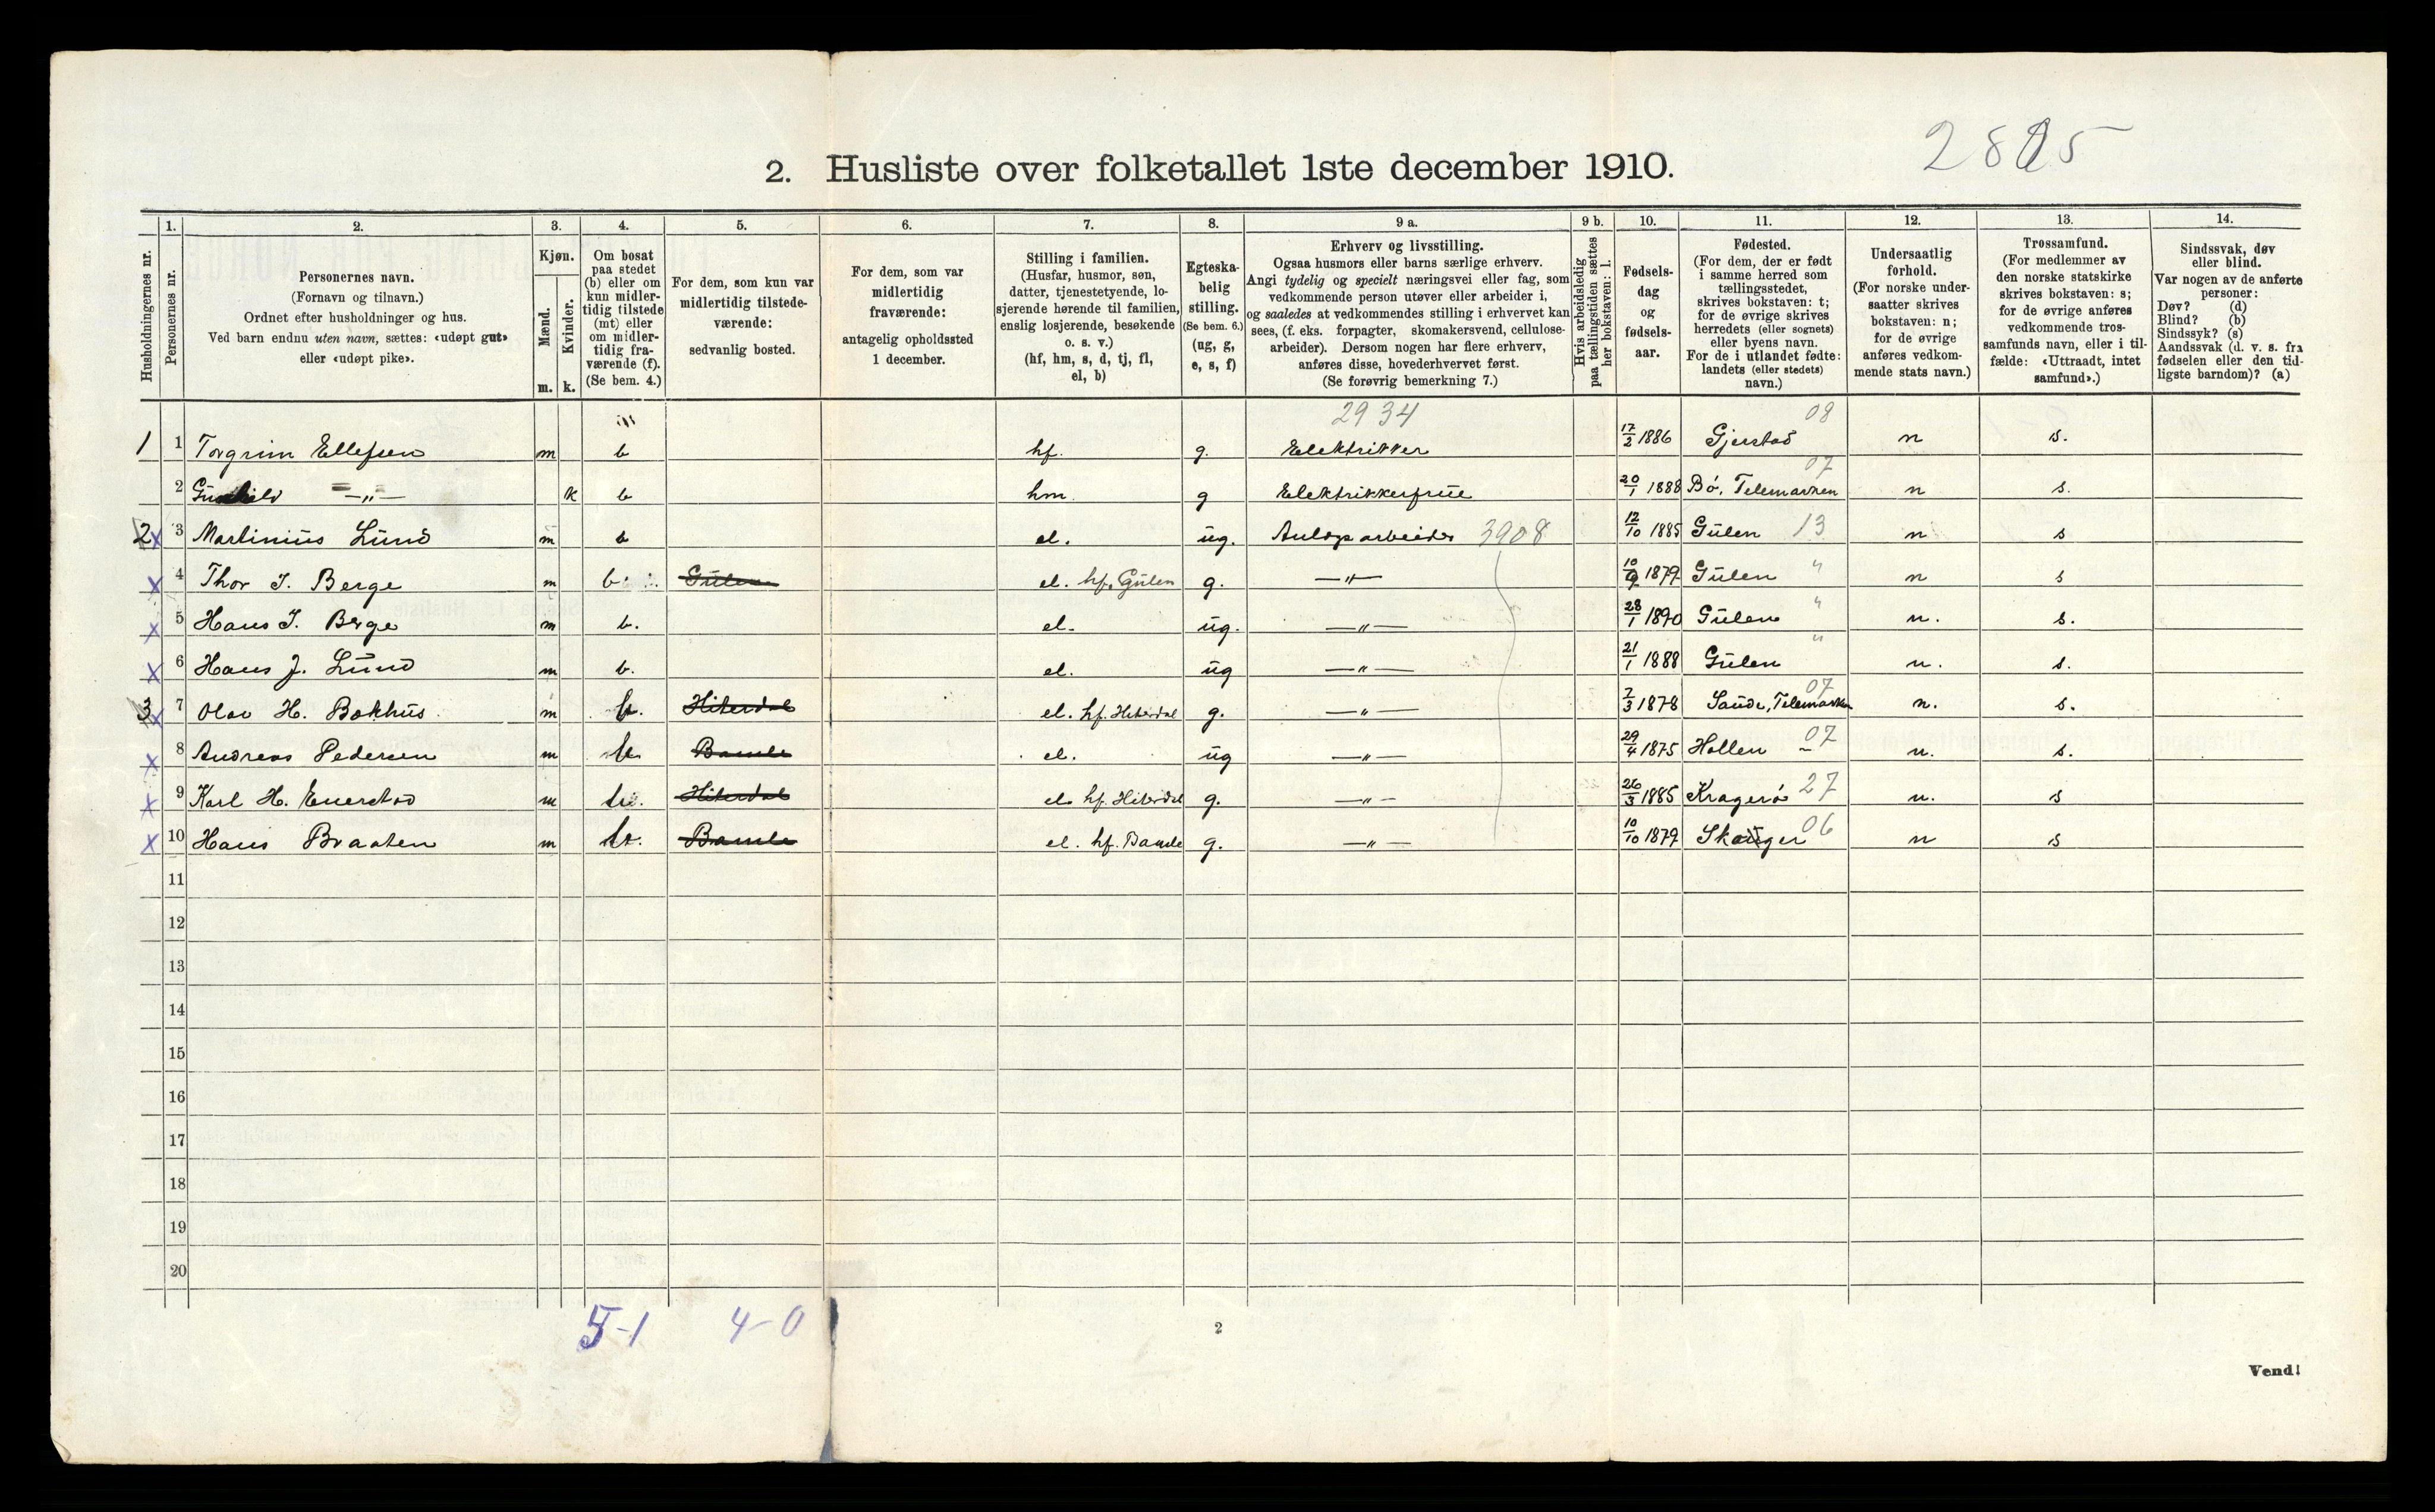 2815
2. Husliste over folketallet 1ste december 1910.
Husholdningernes nr.
1.
Personernes nr.
2.
Personernes navn.
(Fornavn og tilnavn.)
Ordnet efter husholdninger og hus.
Ved barn endnu uten navn, sættes: «udøpt gut»
eller «udøpt pike».
3.
Kjøn.
Mænd.
Kvinder.
m. k.
4.
Om bosat
paa stedet
(b) eller om
kun midler-
tidig tilstede
(mt) eller
om midler-
tidig fra-
værende (f).
(Se bem. 4.)
5.
For dem, som kun var
midlertidig tilstede-
værende:
sedvanlig bosted.
6.
For dem, som var
midlertidig
fraværende:
antagelig opholdssted
1 december.
7.
Stilling i familien.
(Husfar, husmor, søn,
datter, tjenestetyende, lo-
sjerende hørende til familien,
enslig losjerende, besøkende
o. s. v.)
(hf, hm, s, d, tj, fl,
el, b)
8.
Egteska-
belig
stilling.
(Se bem. 6.)
(ug, g,
e, s, f)
9 a.
Erhverv og livsstilling.
Ogsaa husmors eller barns særlige erhverv.
Angi tydelig og specielt næringsvei eller fag, som
vedkommende person utøver eller arbeider i,
og saaledes at vedkommendes stilling i erhvervet kan
sees, (f. eks. forpagter, skomakersvend, cellulose-
arbeider). Dersom nogen har flere erhverv,
anføres disse, hovederhvervet først.
(Se forøvrig bemerkning 7.)
9 b.
Hvis arbeidsledig
paa tællingstiden sættes
her bokstaven: l.
10.
Fødsels-
dag
og
fødsels-
aar.
11.
Fødested.
(For dem, der er født
i samme herred som
tællingsstedet,
skrives bokstaven: t;
for de øvrige skrives
herredets (eller sognets)
eller byens navn.
For de i utlandet fødte:
landets (eller stedets)
navn.)
12.
Undersaatlig
forhold.
(For norske under-
saatter skrives
bokstaven: n;
for de øvrige
anføres vedkom-
mende stats navn.)
13.
Trossamfund.
(For medlemmer av
den norske statskirke
skrives bokstaven: s;
for de øvrige anføres
vedkommende tros-
samfunds navn, eller i til-
fælde: «Uttraadt, intet
samfund».)
14.
Sindssvak, døv
eller blind.
Var nogen av de anførte
personer:
Døv? (d)
Blind? (b)
Sindssyk? (s)
Aandssvak (d. v. s. fra
fødselen eller den tid-
ligste barndom)? (a)
2934 08
1 1 Torgrim Ellefsen m b hf. g. Elektrikker 17/2 1886 Gjerstad n s.
07
2 Gunhild —„— k b hm g Elektrikkerfrue 20/1 1888 Bø, Telemarken n s.
2 x 3 Martinius Lund m b el. ug. Anlægsarbeider 3908 12/10 1885 Gulen 13 n s
x 4 Thor I. Berge m b. Gulen el. hf. Gulen g. —„— 10/9 1879 Gulen „ n s
x 5 Hans I. Berge m b. el. ug. —„— 28/1 1890 Gulen „ n. s.
x 6 Hans J. Lund m b. el. ug —„— 21/1 1888 Gulen „ n. s.
07
3 x 7 Olav H. Bakhus m b. Hiterdal el. hf. Hiterdal g. —„— 7/3 1878 Saude, Telemarken n. s.
x 8 Andreas Pedersen m b. Bamle el. ug —„— 29/4 1875 Hollen 07 n. s.
x 9 Karl H. Enerstad m b. Hiterdal el. hf. Hiterdal g. —„— 26/3 1885 Kragerø 27 n. s
x 10 Hans Braaten m b. Bamle el. hf. Bamle g. —„— 10/10 1879 Skauger 06 n s
11
12
13
14
15
16
17
18
19
20
5-1 4-0
2
Vend!